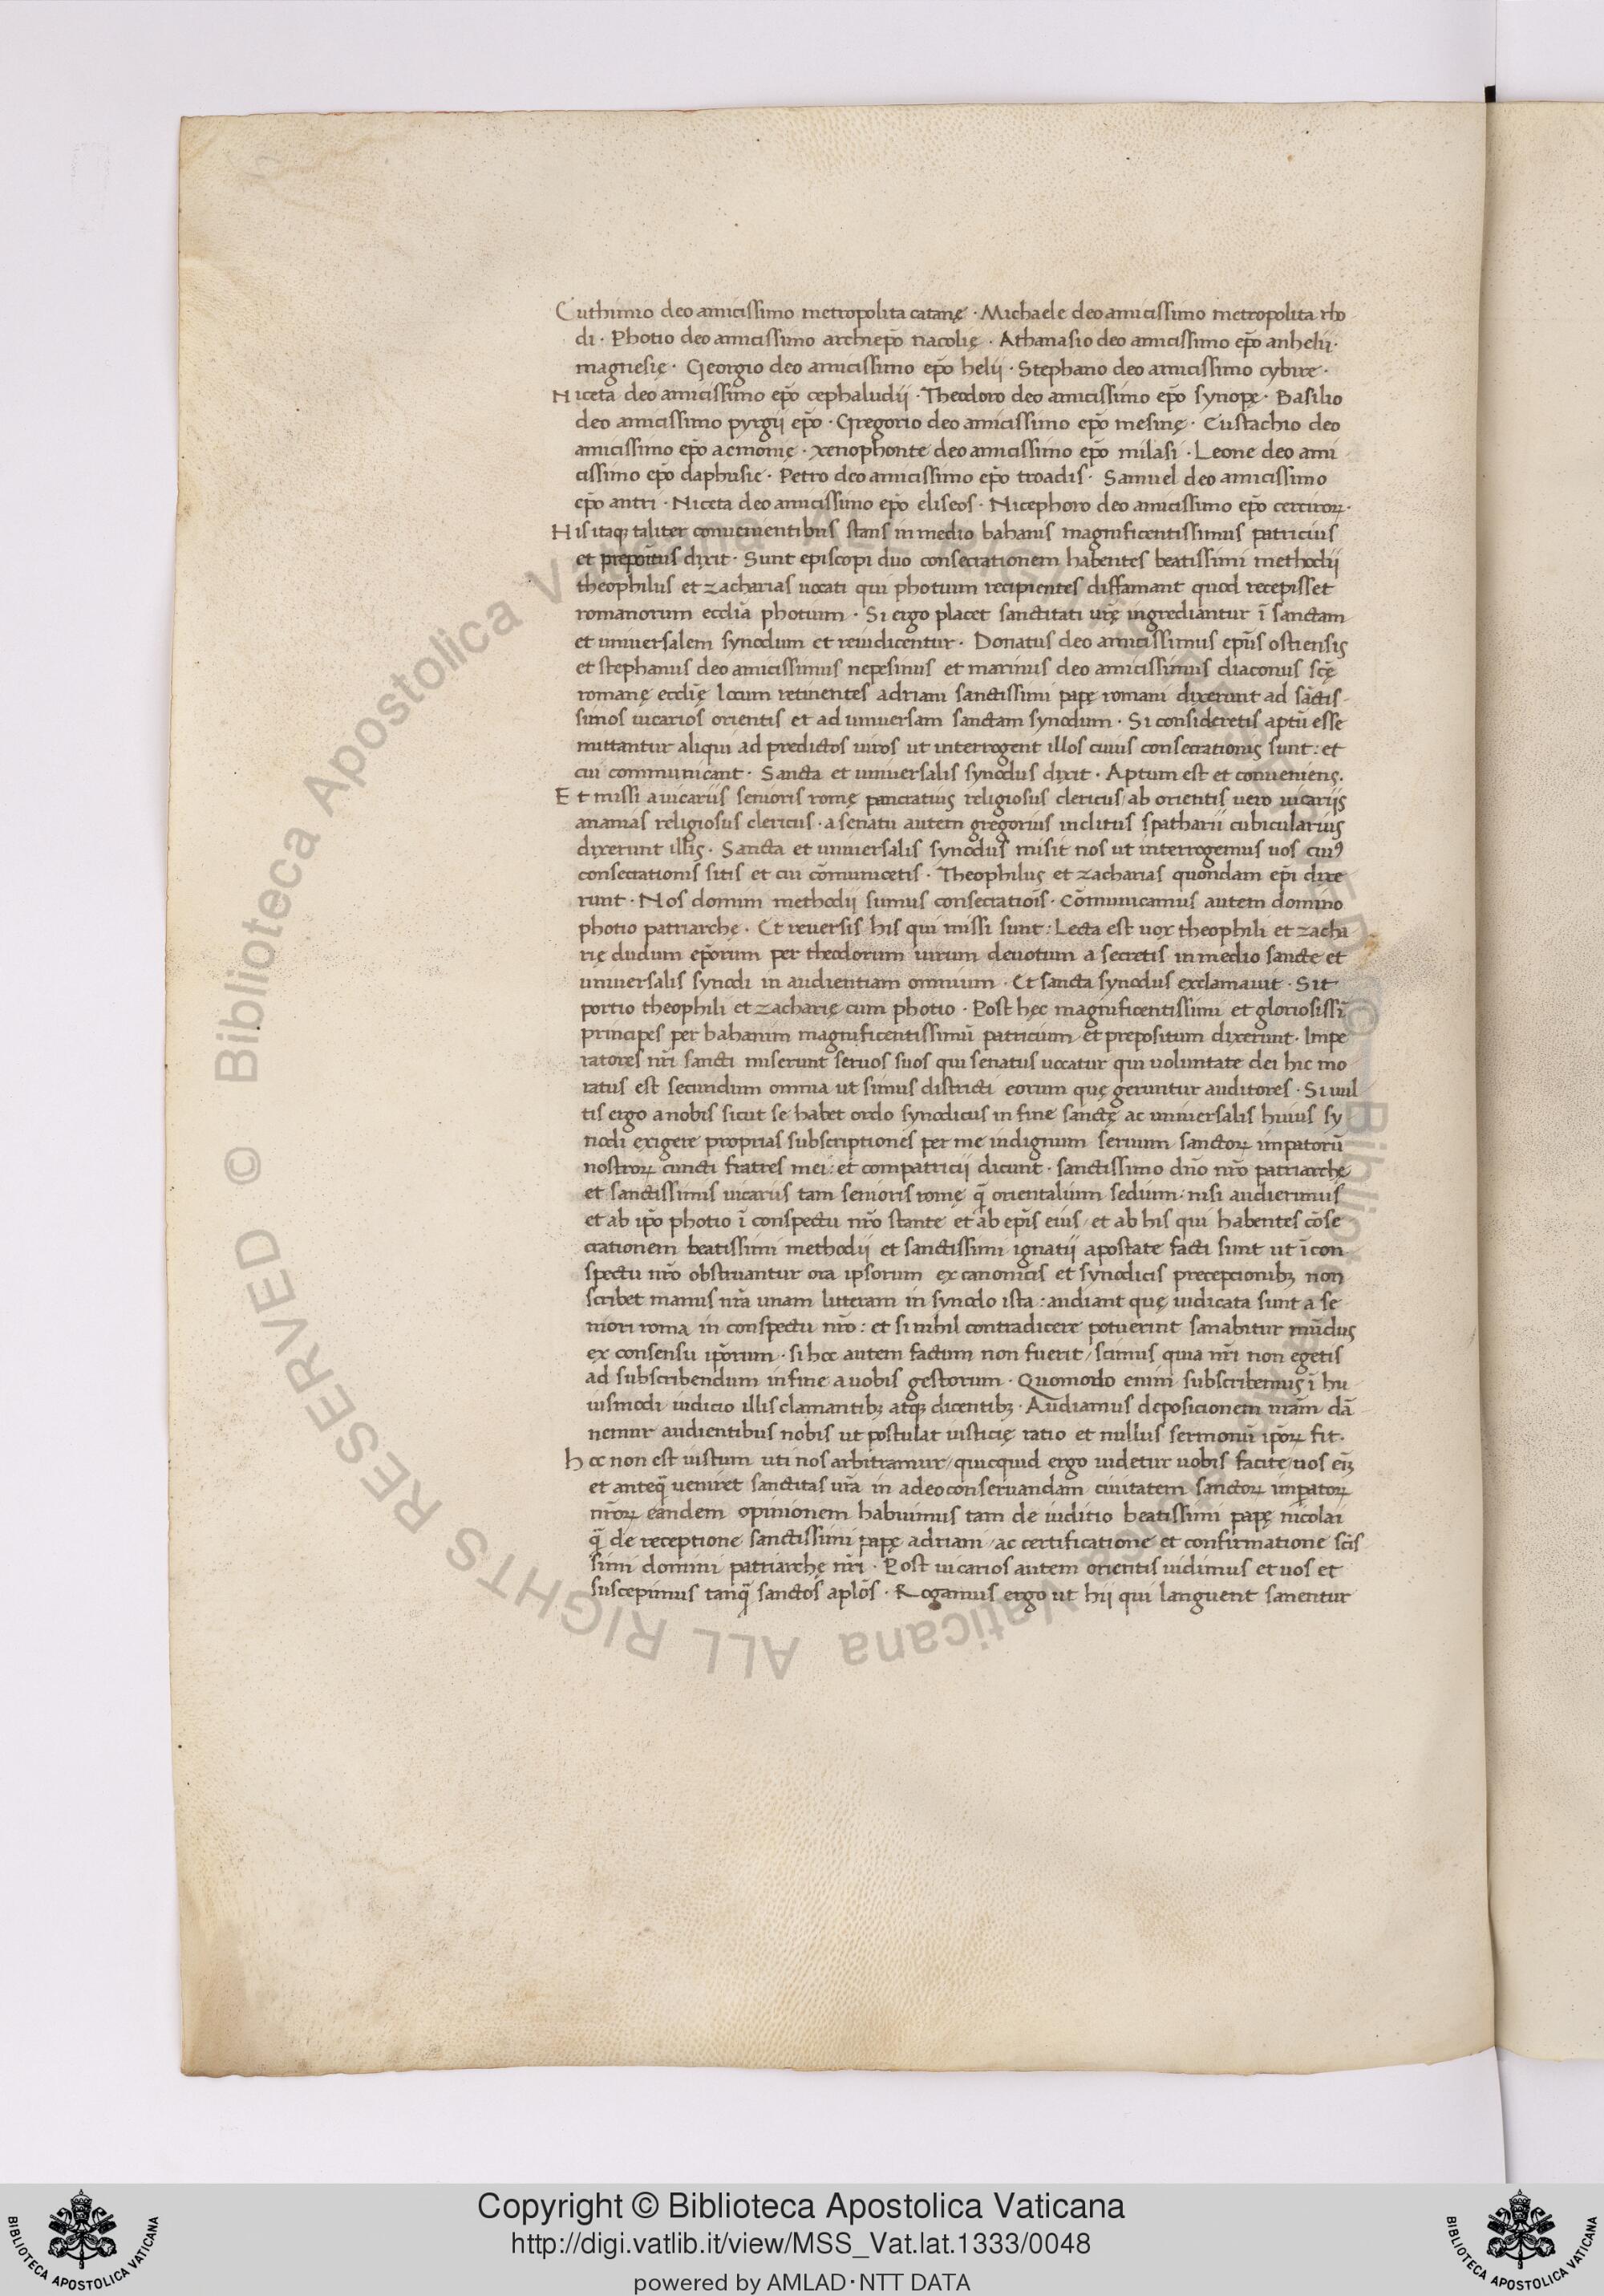 Euthimio deo amicissimo metropolita catanę · Michaele deo amicissimo metropolita rho
di · Photio deo amicissimo archiep̄o nacolię · Athanasio deo amicissimo ep̄o anhelii ·
magnesię · Georgio deo amicissimo ep̄o helii · Stephano deo amicissimo cybire ·
Niceta deo amicissimo ep̄o cephaludii · Theodoro deo amicissimo ep̄o synopę · Basilio
deo amicissimo pyrgii ep̄o · Gregorio deo amicissimo ep̄o mesinę · Eustachio deo
amicissimo ep̄o acmonię · xenophonte deo amicissimo ep̄o milasi · Leone deo ami
cissimo ep̄o daphusię · Petro deo amicissimo ep̄o troadis · Samuel deo amicissimo
ep̄o antri · Niceta deo amicissimo ep̄o eliseos · Nicephoro deo amicissimo ep̄o cerciroꝝ ·
His itaqꝫ taliter convenientibus stans in medio bahanis magnificentissimus patricius
et prepoitus dixit · Sunt episcopi duo consecrationem habentes beatissimi methodii
theophilus et zacharias uocati qui photium recipientes diffamant quod recepisset
romanorum eccl̄ia photium · Si ergo placet sanctitati ur̄ę ingrediantur ī sanctam
et universalem synodum et reiudicentur · Donatus deo amicissimus ep̄us ostiensis
et stephanus deo amicissimus nepesinus et marinus deo amicissimus diaconus sc̄ę
romanę eccl̄ię locum retinentes adriani sanctissimi papę romani dixerunt ad sāctis
simos uicarios orientis et ad universam sanctam synodum · Si consideretis aptū esse
mittantur aliqui ad predictos uiros ut interrogent illos cuius consecrationis sunt : et
cui communicant · Sancta et universalis synodus dixit · Aptum est et conveniens.
Et missi a uicariis senioris romę pancratius religiosus clericus / ab orientis uero uicariis
ananias religiosus clericus · a senatu autem gregorius inclitus spatharii cubicularius
dixerunt illis · Sancta et universalis synodus misit nos ut interrogemus uos cuiꝰ
consecrationis sitis et cui cōmunicetis · Theophilus et zacharias quondam ep̄i dixe
runt · Nos domini methodii sumus consecratiōis · Cōmunicamus autem domino
photio patriarchę · Et reuersis his qui missi sunt : Lecta est uox theophili et zacha
rię dudum ep̄orum per theodorum uirum deuotum a secretis in medio sancte et
universalis synodi in audientiam omnium · Et sancta synodus exclamauit · Sit
portio theophili et zacharię cum photio · Post hęc magnificentissimi et gloriosissī
principes per bahanim magnificentissimū patricium et prepositum dixerunt · Impe
ratores nr̄i sancti miserunt seruos suos qui senatus uocatur qui uoluntate dei hic mo
ratus est secundum omnia ut simus districti eorum quę geruntur auditores · Si uul
tis ergo a nobis sicut se habet ordo synodicus in fine sanctę ac universalis huius sy
nodi exigere proprias subscriptiones per me indignum seruum sanctoꝝ impatorū
nostroꝝ cuncti fratres mei : et compatricii dicunt · sanctissimo dn̄o nr̄o patriarchę
et sanctissimis uicariis tam senioris romę q̄ orientalium sedium : nisi audierimus
et ab ip̄o photio ī conspectu nr̄o stante et ab ep̄is eius / et ab his qui habentes cōse
crationem beatissimi methodii et sanctissimi ignatii apostate facti sunt ut ī con
spectu nr̄o obstruantur ora ipsorum ex canonicis et synodicis preceptionibꝫ non
scribet manus nr̄a unam litteram in synodo ista : audiant quę iudicata sunt a se
niori roma in conspectu nr̄o : et si nihil contradicere potuerint sanabitur mūdus
ex consensu ip̄orum · si hoc autem factum non fuerit / scimus quia nr̄i non egetis
ad subscribendum in fine a uobis gestorum · Quomodo enim subscribemus ī hu
iusmodi iudicio illis clamantibꝫ atqꝫ dicentibꝫ · Audiamus deposicionem nr̄am dā
nemur audientibus nobis ut postulat iusticię ratio et nullus sermonū ip̄oꝝ fit ·
hoc non est iustum uti nos arbitramur / quicquid ergo uidetur uobis facite / uos eīꝫ
et anteq̄ veniret sanctitas ur̄a in adeo conservandam ciuitatem sanctoꝝ impatoꝝ
nr̄oꝝ eandem opinionem habuimus tam de iuditio beatissimi papę nicolai
q̄ de receptione sanctissimi papę adriani / ac certificatione et confirmatione sc̄is
simi domini patriarchę nr̄i · Post uicarios autem orientis uidimus et uos et
suscepimus tanq̄ sanctos apl̄os · Rogamus ergo ut hii qui languent sanentur
© Biblioteca Apostolica Vaticana ALL RIGHTS RESERVED
Copyright © Biblioteca Apostolica Vaticana
http://digi.vatlib.it/view/MSS_Vat.lat.1333/0048
powered by AMLAD·NTT DATA
BIBLIOTECA APOSTOLICA VATICANA
BIBLIOTECA APOSTOLICA VATICANA